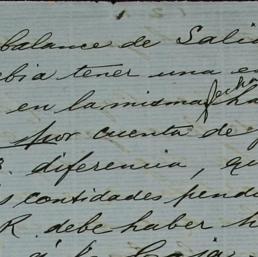 balance de Sali
bia tener una e
en la misma fecha
por cuenta de
diferencia, qu
s cantidades pend
R. debe haber h
á la Caja